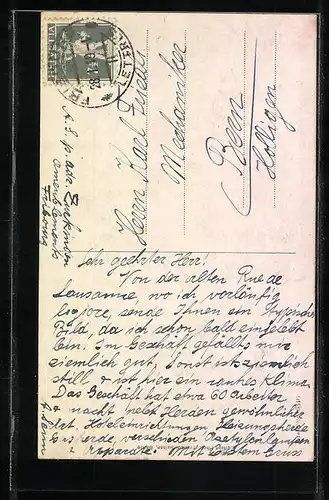 HELVETIA
Herrn Karl
Mechaniker
Bern
Holligen
A. S. p. adr.
Ameublements
Fribourg
Sehr geehrter Herr!
Von der alten Rue de
Lausanne, wo ich, vorläufig
logiere, sende Ihnen ein typisches
Bild, da ich schon bald eingelebt
bin. Im Geschäft gefällts mir
ziemlich gut, Sonst ists ziemlich
still & ist hier ein rauhes Klima.
Das Geschäft hat etwa 60 Arbeiter
& macht nebst Herden gewöhnlicher
Art, Hoteleinrichtungen, Heizungsherde
verschieden Acetylenlampen
Apparate. Mit bestem Gruss